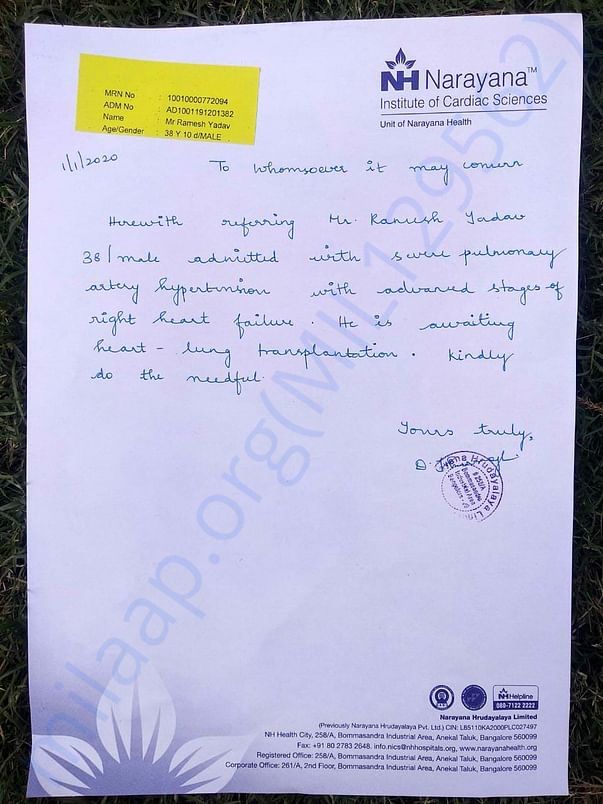 NH Narayana™
Institute of Cardiac Sciences
Unit of Narayana Health
MRN No : 10010000772094
ADM No : AD1001191201382
Name : Mr Ramesh Yadav
Age/Gender : 38 Y 10 d/MALE
1/1/2020
To whomsoever it may concern
Herewith referring Mr. Ramesh Yadav
38/male admitted with severe pulmonary
artery hypertension with advanced stages of
right heart failure. He is awaiting
heart - lung transplantation. Kindly
do the needful.
Yours truly,
Bommasandra
milaap.org(MIL129562)
NH Helpline
080-7122 2222
Narayana Hrudayalaya Limited
(Previously Narayana Hrudayalaya Pvt. Ltd.) CIN: L85110KA2000PLC027497
NH Health City, 258/A, Bommasandra Industrial Area, Anekal Taluk, Bangalore 560099
Fax: +91 80 2783 2648. info.nics@nhhospitals.org, www.narayanahealth.org
Registered Office: 258/A, Bommasandra Industrial Area, Anekal Taluk, Bangalore 560099
Corporate Office: 261/A, 2nd Floor, Bommasandra Industrial Area, Anekal Taluk, Bangalore 560099